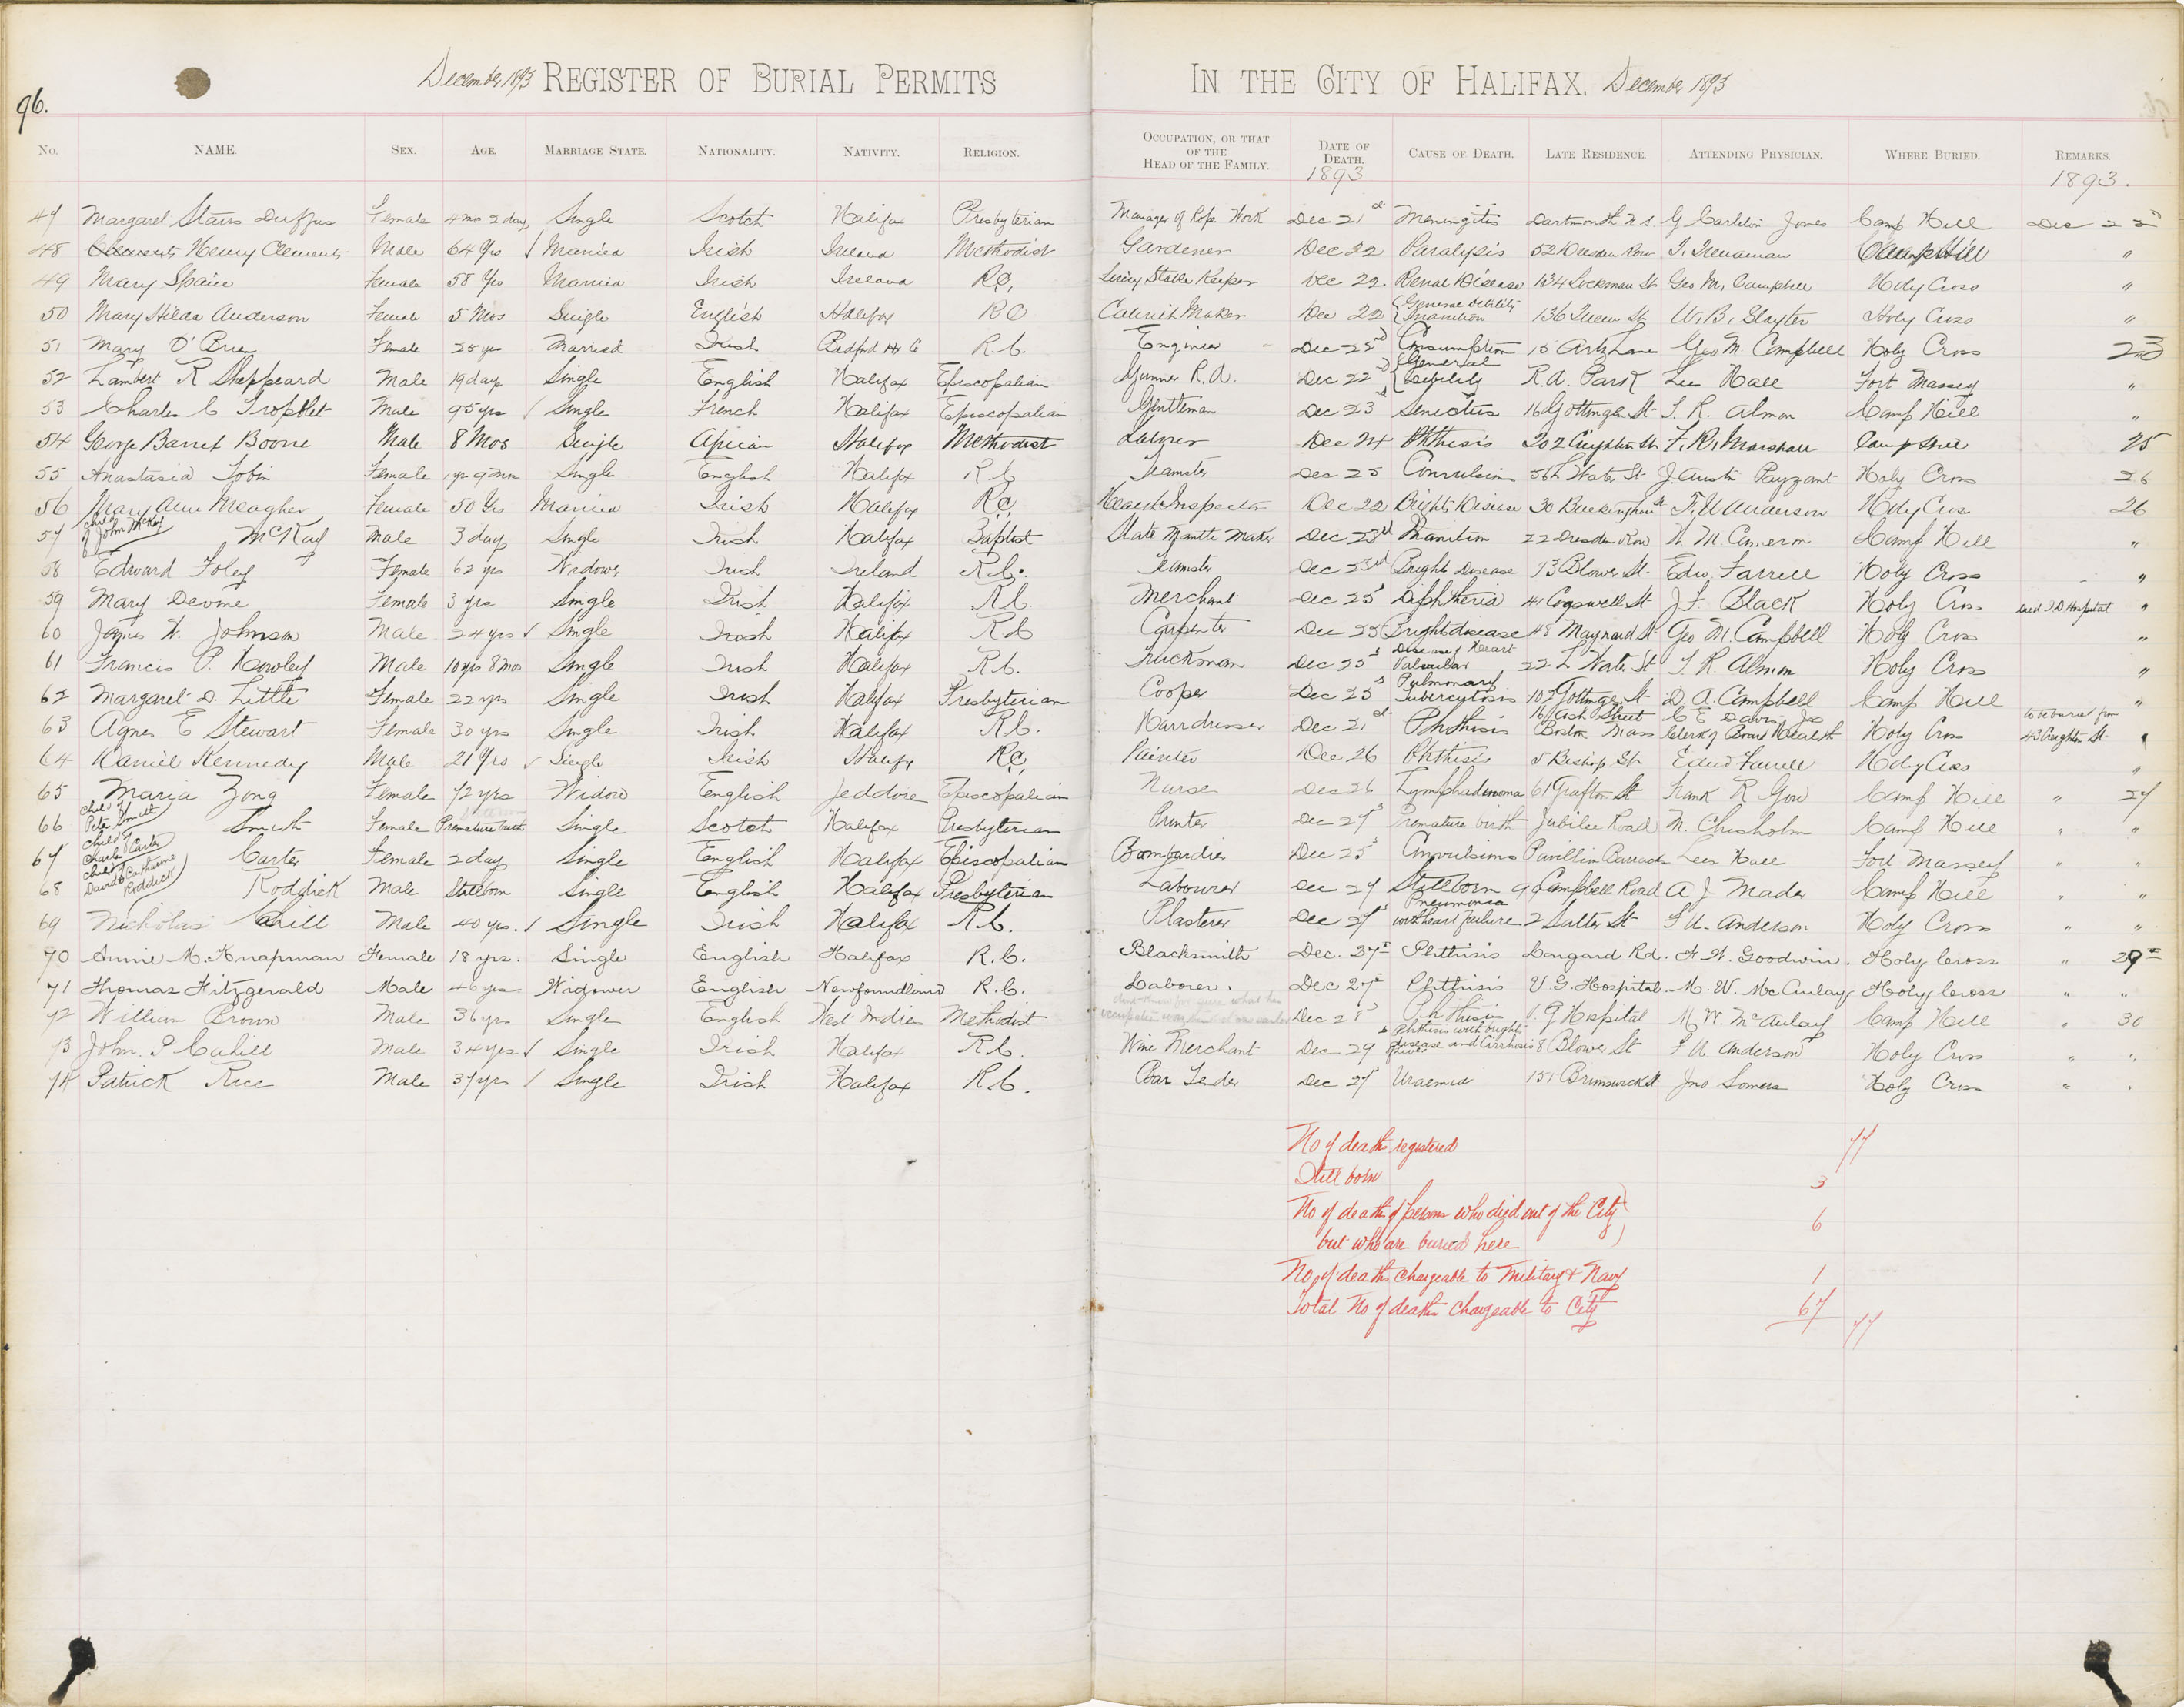 96.
December 1893 REGISTER OF BURIAL PERMITS IN THE CITY OF HALIFAX. December 1893
No. NAME. SEX. AGE. MARRIAGE STATE. NATIONALITY. NATIVITY. RELIGION. OCCUPATION, OR THAT OF THE HEAD OF THE FAMILY. DATE OF DEATH. 1893 CAUSE OF DEATH. LATE RESIDENCE. ATTENDING PHYSICIAN. WHERE BURIED. REMARKS. 1893.
47 Margaret Stairs Duffus Female 4 mos 2 days Single Scotch Halifax Presbyterian Manager of Rope Work Dec 21st Meningitis Dartmouth N.S. G Carleton Jones Camp Hill Dec 23
48 Henry Clements Male 64 Yrs / Married Irish Ireland Methodist Gardener Dec 22 Paralysis 52 Dresden Row T. Trenaman Camp Hill "
49 Mary Spain Female 58 Yrs Married Irish Ireland R.C. Livery Stable Keeper Dec 22 Renal Disease 134 Lockman St Geo M. Campbell Holy Cross "
50 Mary Hilda Anderson Female 5 Mos Single English Halifax RC Cabinet Maker Dec 22 { General Debility Inanition 136 Queen St W. B. Slayter Holy Cross "
51 Mary O'Brien Female 25 yrs Married Irish Bedford Hx Co R.C. Engineer Dec 22nd Consumption 15 Artz Lane Geo M. Campbell Holy Cross 23
52 Lambert R Sheppeard Male 19 days Single English Halifax Episcopalian Gunner R.A. Dec 22nd { General Debility R.A. Park Lees Hall Fort Massey "
53 Charles C Tropblet Male 95 yrs / Single French Halifax Episcopalian Gentleman Dec 23 Senectus 16 Gottingen St T. R. Almon Camp Hill "
54 George Barret Boone Male 8 Mos Single African Halifax Methodist Laborer Dec 24 Phthisis 202 Creighton St F. R. Marshall Camp Hill 25
55 Anastasia Tobin Female 1 yr 9 mos Single English Halifax R C Teamster Dec 25 Convulsions 56 L Water St J. Austin Payzant Holy Cross 26
56 Mary Ann Meagher Female 50 Yrs Married Irish Halifax R.C. Health Inspector Dec 22 Brights Disease 30 Buckingham St F. U Anderson Holy Cross 26
57 child of John McKay McKay Male 3 days Single Irish Halifax Baptist Slate Mantle Maker Dec 23rd Inanition 22 Dresden Row W. M. Cameron Camp Hill "
58 Edward Foley Female 62 yrs Widower Irish Ireland R.C. Teamster Dec 23rd Brights Disease 73 Blowers St. Edw. Farrell Holy Cross "
59 Mary Devine Female 3 yrs Single Irish Halifax R.C. Merchant Dec 25 Diphtheria 41 Cogswell St J. F. Black Holy Cross Died I D Hospital "
60 James W. Johnson Male 24 yrs / Single Irish Halifax R C Carpenter Dec 25 Brights disease 48 Maynard St Geo M. Campbell Holy Cross "
61 Francis P. Howley Male 10 yrs 8 mos Single Irish Halifax R.C. Truckman Dec 25 Disease of Heart Valvular 22 L Water St T. R Almon Holy Cross "
62 Margaret D. Little Female 22 yrs Single Irish Halifax Presbyterian Cooper Dec 25 Pulmonary Tuberculosis 107 Gottingen St D. A. Campbell Camp Hill "
63 Agnes E Stewart Female 30 yrs Single Irish Halifax R.C. Hairdresser Dec 21st Phthisis 16 Ash Street Boston Mass C E Davis, Jr Clerk of Board Health Holy Cross to be buried from 43 Creighton St. "
64 Daniel Kennedy Male 21 Yrs / Single Irish Halifax R.C. Painter Dec 26 Phthisis 5 Bishop St Edwd Farrell Holy Cross "
65 Maria Zong Female 72 yrs Widow English Jeddore Episcopalian Nurse Dec 26 Lymphadenoma 61 Grafton St Frank R Gow Camp Hill " 27
66 child of Peter Smith Smith Female Premature birth Single Scotch Halifax Presbyterian Printer Dec 27 Premature birth Jubilee Road M. Chisholm Camp Hill " "
67 child of Charles Carter Carter Female 2 days Single English Halifax Episcopalian Bombardier Dec 25 Convulsions Pavillion Barracks Lees Hall Fort Massey " "
68 child of David & Catherine Roddick Roddick Male Stillborn Single English Halifax Presbyterian Labourer Dec 27 Stillborn 9 Campbell Road A J Mader Camp Hill " "
69 Nicholas Cahill Male 40 yrs. / Single Irish Halifax R.C. Plasterer Dec 27 Pneumonia with heart failure 2 Salter St F U. Anderson Holy Cross " "
70 Annie M. Knapman Female 18 yrs. Single English Halifax R.C. Blacksmith Dec. 27th Phthisis Longard Rd. F. W. Goodwin. Holy Cross " 29th
71 Thomas Fitzgerald Male 46 yrs Widower English Newfoundland R.C. Laborer. Dec 27th Phthisis V. G. Hospital. M. W. McAulay Holy Cross " "
72 William Brown Male 36 yrs Single English West Indies Methodist Dec 28 Phthisis V. G Hospital M. W. McAulay Camp Hill " 30
73 John P Cahill Male 34 yrs / Single Irish Halifax R.C. Wine Merchant Dec 29 Phthisis with brights disease and Cirrhosis of liver 8 Blowers St F U. Anderson Holy Cross " "
74 Patrick Rice Male 37 yrs / Single Irish Halifax R.C. Bar Tender Dec 27 Uraemia 151 Brunswick St Jno Somers Holy Cross " "
No of deaths registered 77
Still born 3
No of deaths of persons who died out of the City
but who are buried here 6
No, of deaths chargeable to Military & Navy 1
Total No of deaths chargeable to City 67 77